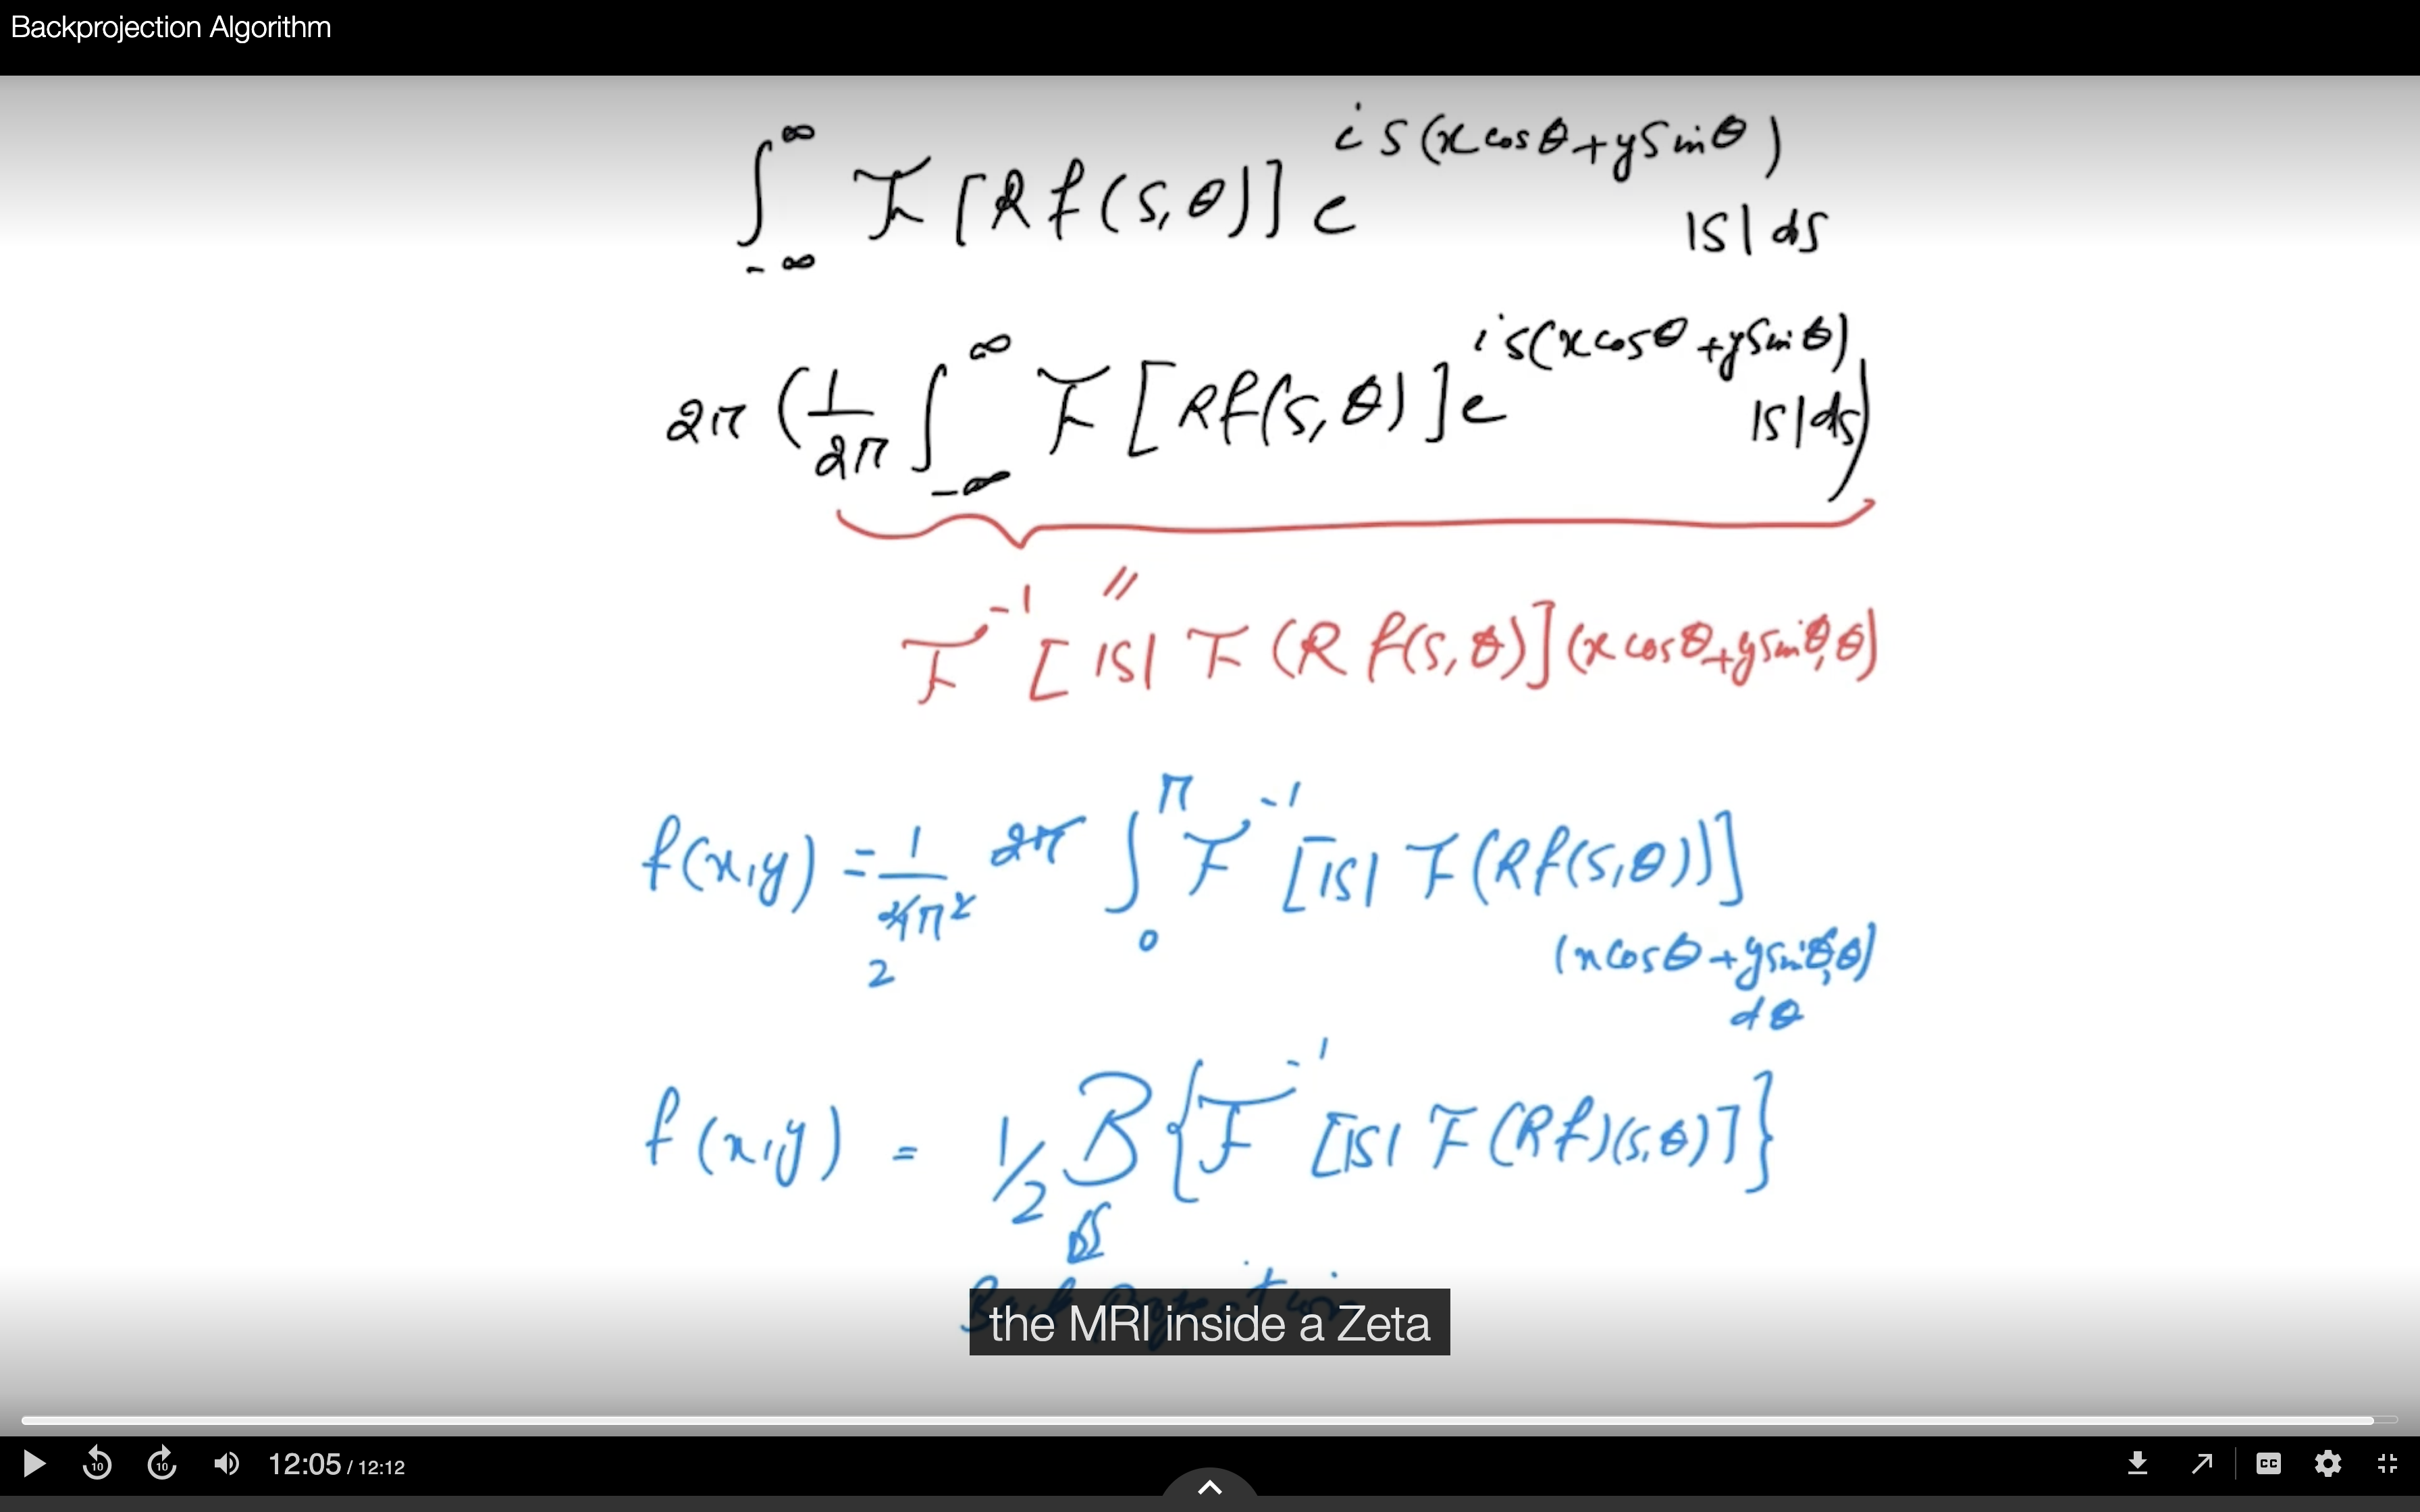 Backprojection Algorithm
∫_{-∞}^{∞} F [Rf(s,θ)] e^{is(x cosθ + y sinθ)} |s| ds
2π (1/2π ∫_{-∞}^{∞} F [Rf(s,θ)] e^{is(x cosθ + y sinθ)} |s| ds)
=
F^{-1} [|s| F (Rf(s,θ)] (x cosθ + y sinθ, θ)
f(x,y) = 1/4π² 2π ∫_0^π F^{-1} [|s| F (Rf(s,θ))]
2
(x cosθ + y sinθ, θ)
dθ
f(x,y) = 1/2 B {F^{-1} [|s| F (Rf)(s,θ)]}
the MRI inside a Zeta
10 10 12:05 / 12:12 CC